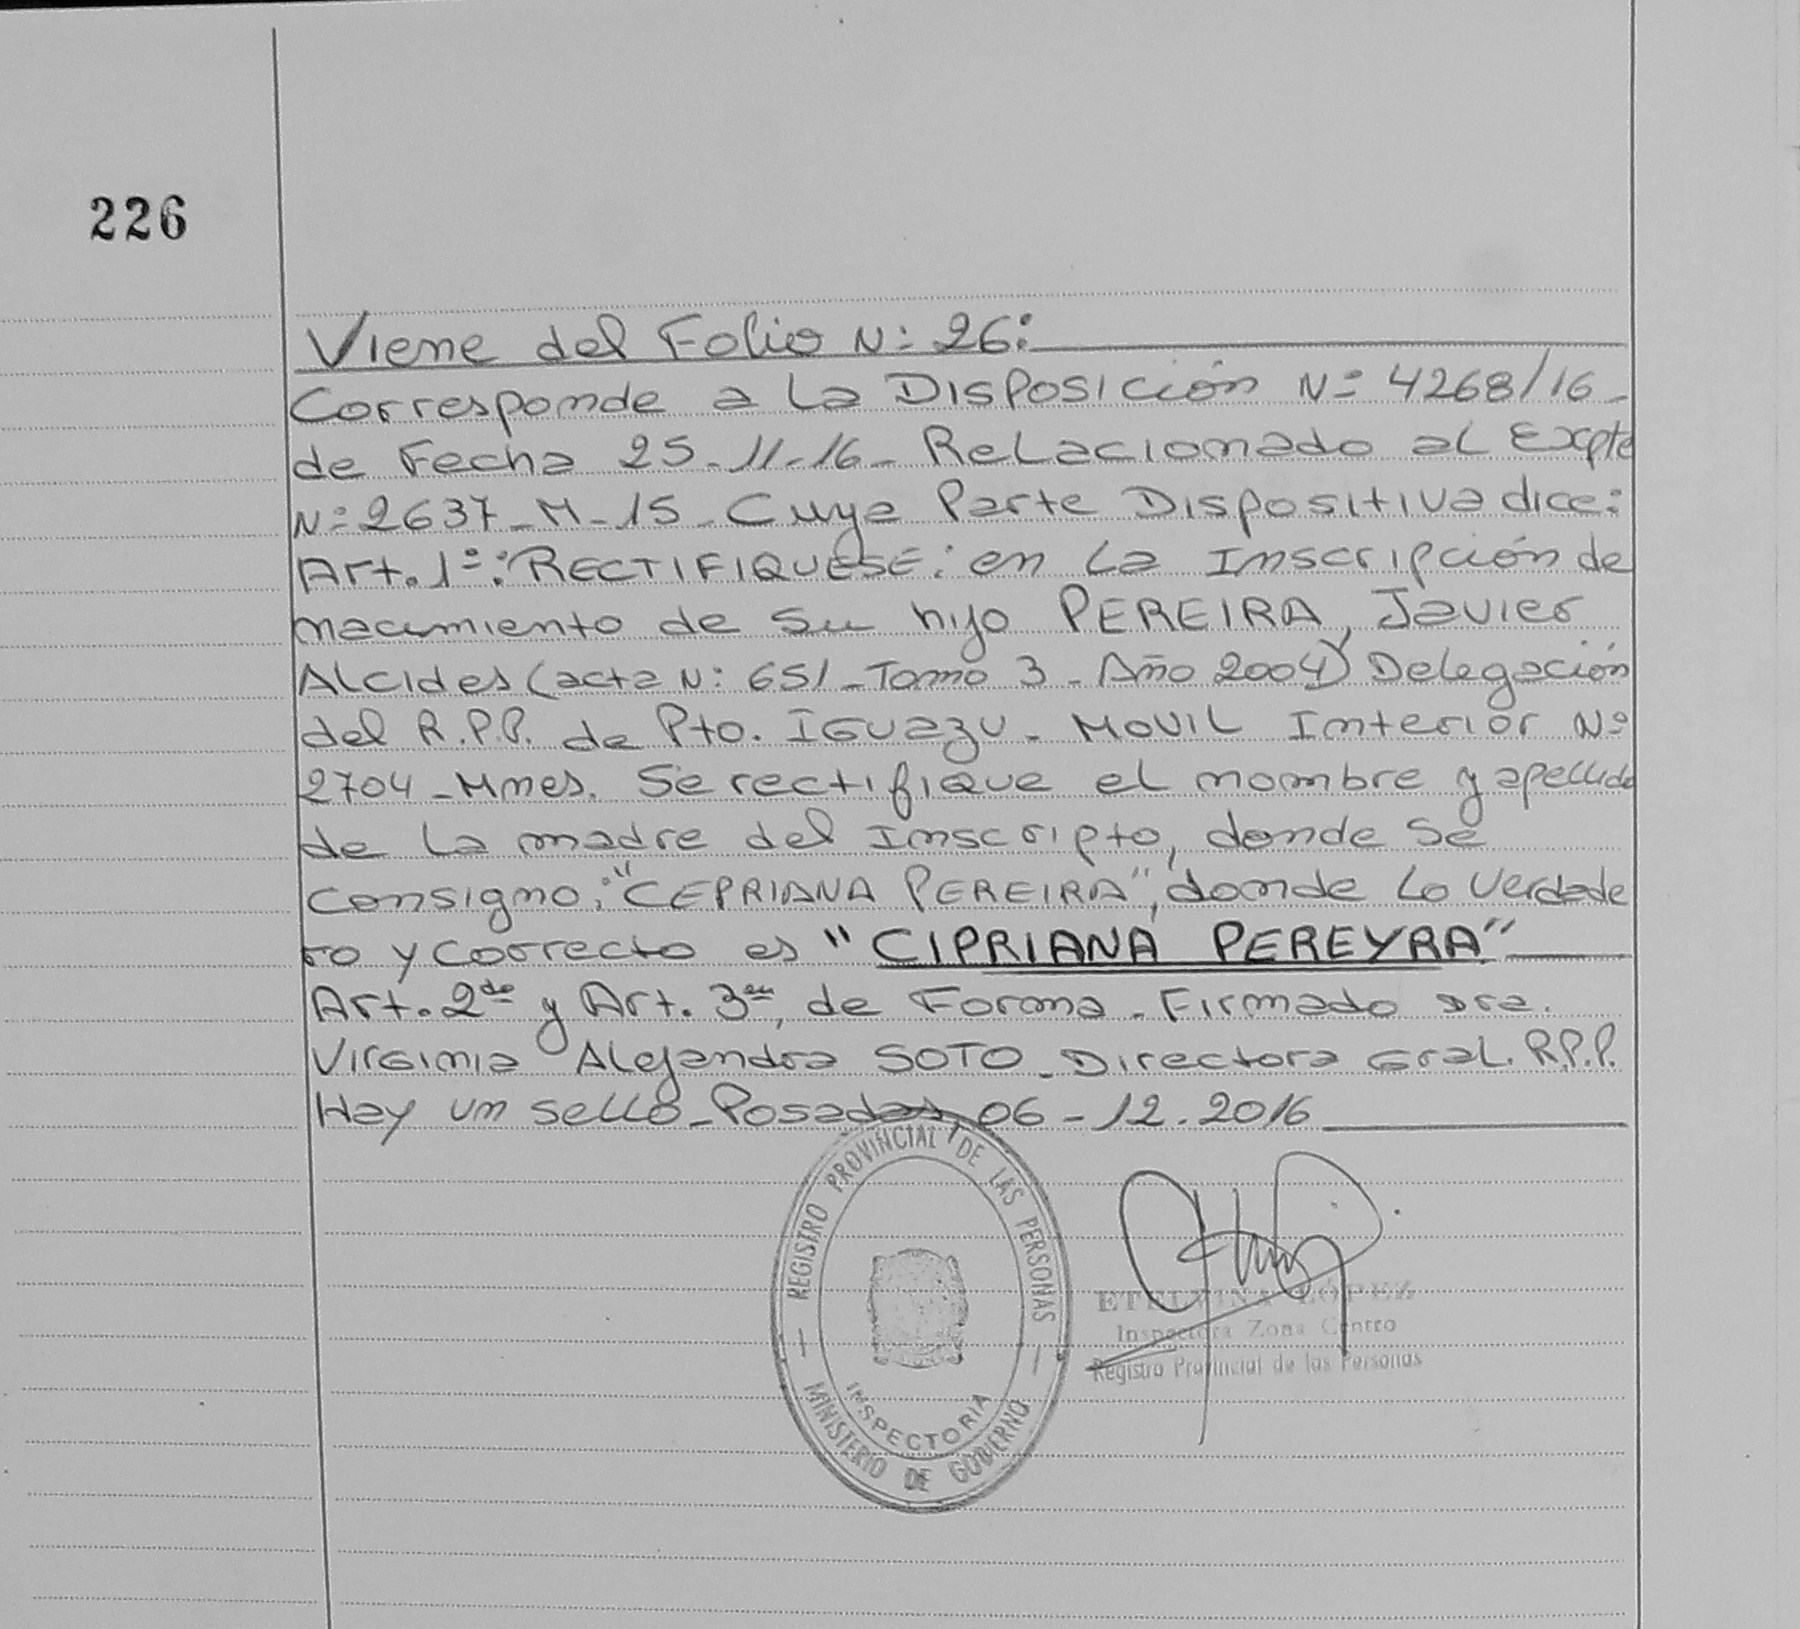 226
Viene del Folio N: 26:
Corresponde a La Disposición N: 4268/16-
de Fecha 25-11-16- Relacionado al Expte
N: 2637-M-15- Cuya Parte Dispositiva dice:
Art. 1º: RECTIFIQUESE: en La Inscripción de
nacimiento de su hijo PEREIRA, Javier
Alcides (acta N: 651-Tomo 3- Año 2004) Delegación
del R.P.P. de Pto. IGUAZU- MOVIL Interior Nº
2704-Mnes. Se rectifique el nombre y apellido
de La madre del Inscripto, donde se
consigno: "CEPRIANA PEREIRA", donde Lo verdade
ro y correcto es "CIPRIANA PEREYRA"
Art. 2do y Art. 3er, de Forma- Firmado Dra.
Virginia Alejandra SOTO- Directora Gral. R.P.P.
Hay un sello- Posadas, 06-12.2016
REGISTRO PROVINCIAL DE LAS PERSONAS
INSPECTORIA
MINISTERIO DE GOBIERNO
ETELVINA LÓPEZ
Inspectora Zona Centro
Registro Provincial de las Personas